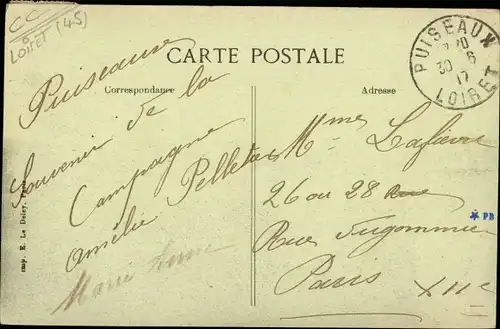 CC
LOIRET (45)
CARTE POSTALE
Correspondance
Adresse
PUISEAUX
7 20
30 - 6
17
LOIRET
Puiseaux
Souvenir de la
Campagne
Amélie Pelletas
Marie
Mme Lafièvre
26 ou 28
Rue Dugommier
Paris XIIe
PB
Imp. E. Le Deley, Paris